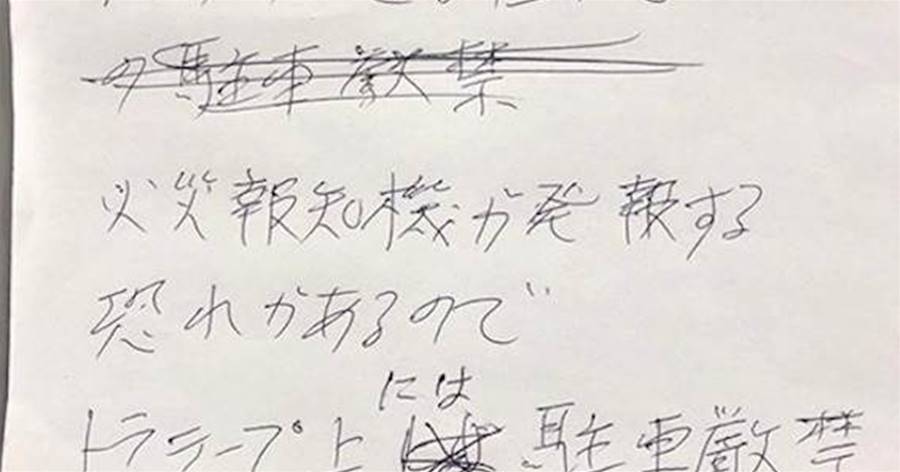 の駐車厳禁
火災報知機が発報する
恐れがあるので
には
トラテープ上 駐車厳禁